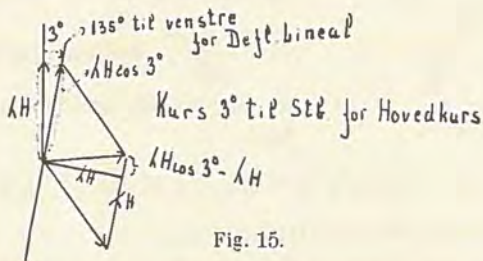 3°
135° til venstre
for Defl. Lineal
λH cos 3°
λH
Kurs 3° til Stb. for Hovedkurs
λH cos 3° - λH
λH
λH
Fig. 15.